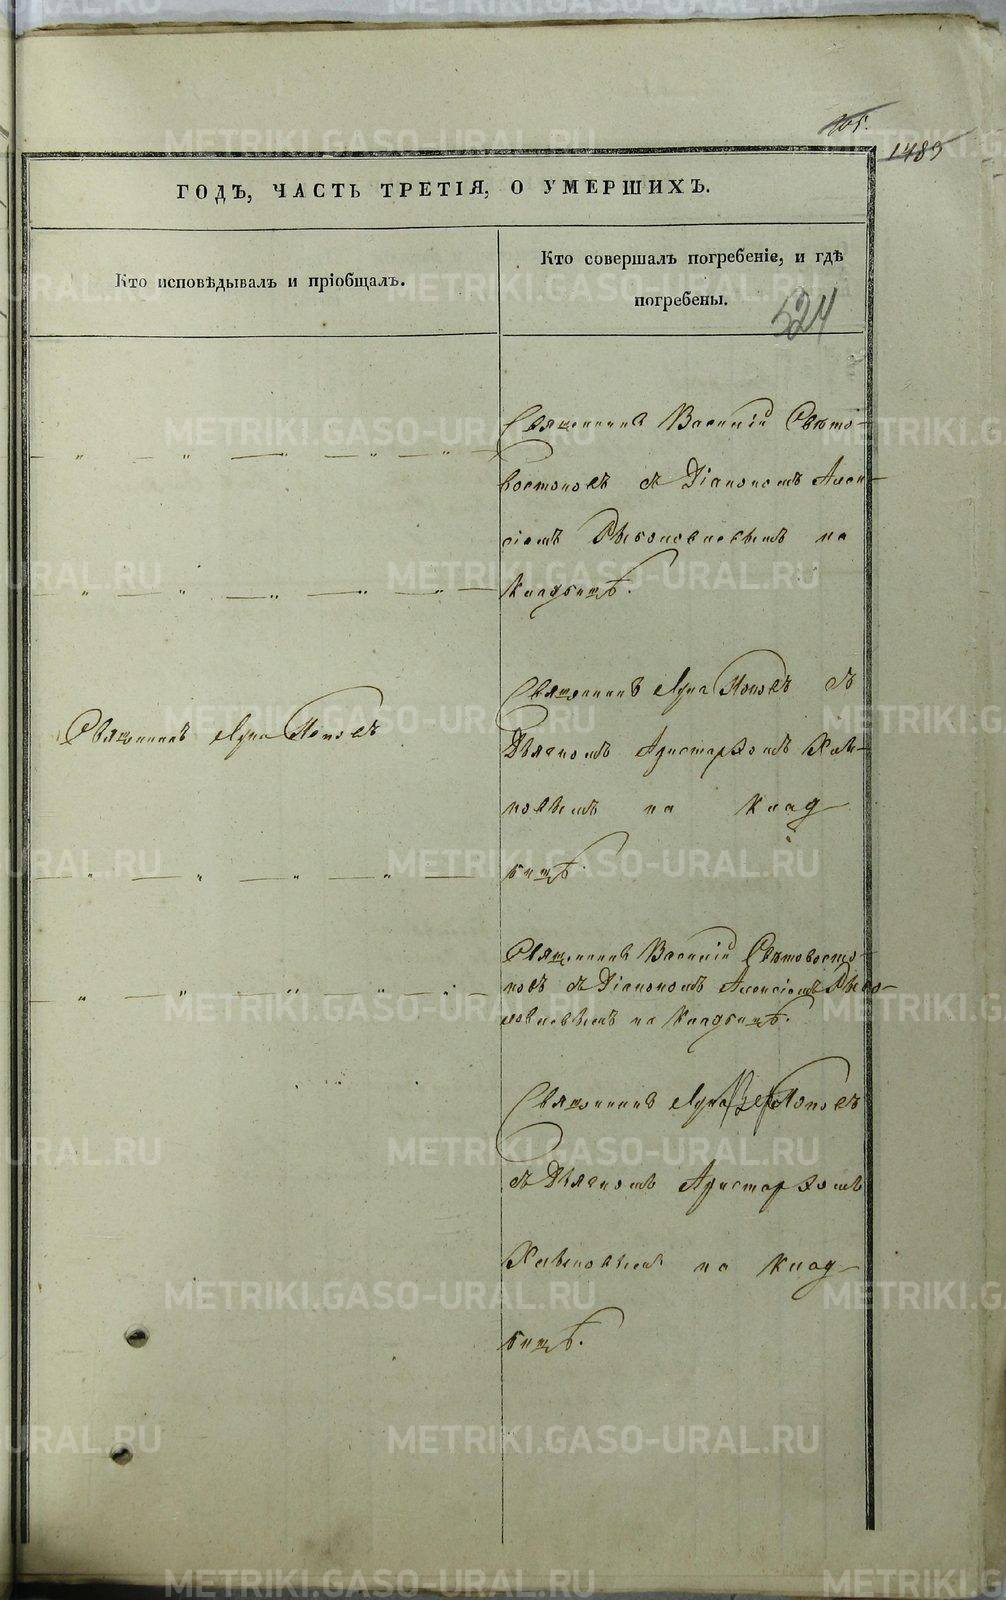 105.
1483
ГОДЪ, ЧАСТЬ ТРЕТІЯ, О УМЕРШИХЪ.
Кто исповѣдывалъ и пріобщалъ.
Кто совершалъ погребеніе, и гдѣ
погребены.
524
Священникъ Василій Свѣто-
востоковъ съ Діакономъ Алек-
сіемъ на
Кладбищѣ.
Священникъ Лука Поповъ съ
Священникъ Лука Поповъ
Дьячкомъ Аристархомъ
на Клад
бищѣ.
Священникъ Василій Свѣтовосто-
ковъ съ Діакономъ Алексіемъ
на Кладбищѣ.
Священникъ Лука Поповъ
съ Дьячкомъ Аристархомъ
на Клад
бищѣ.
METRIKI.GASO-URAL.RU